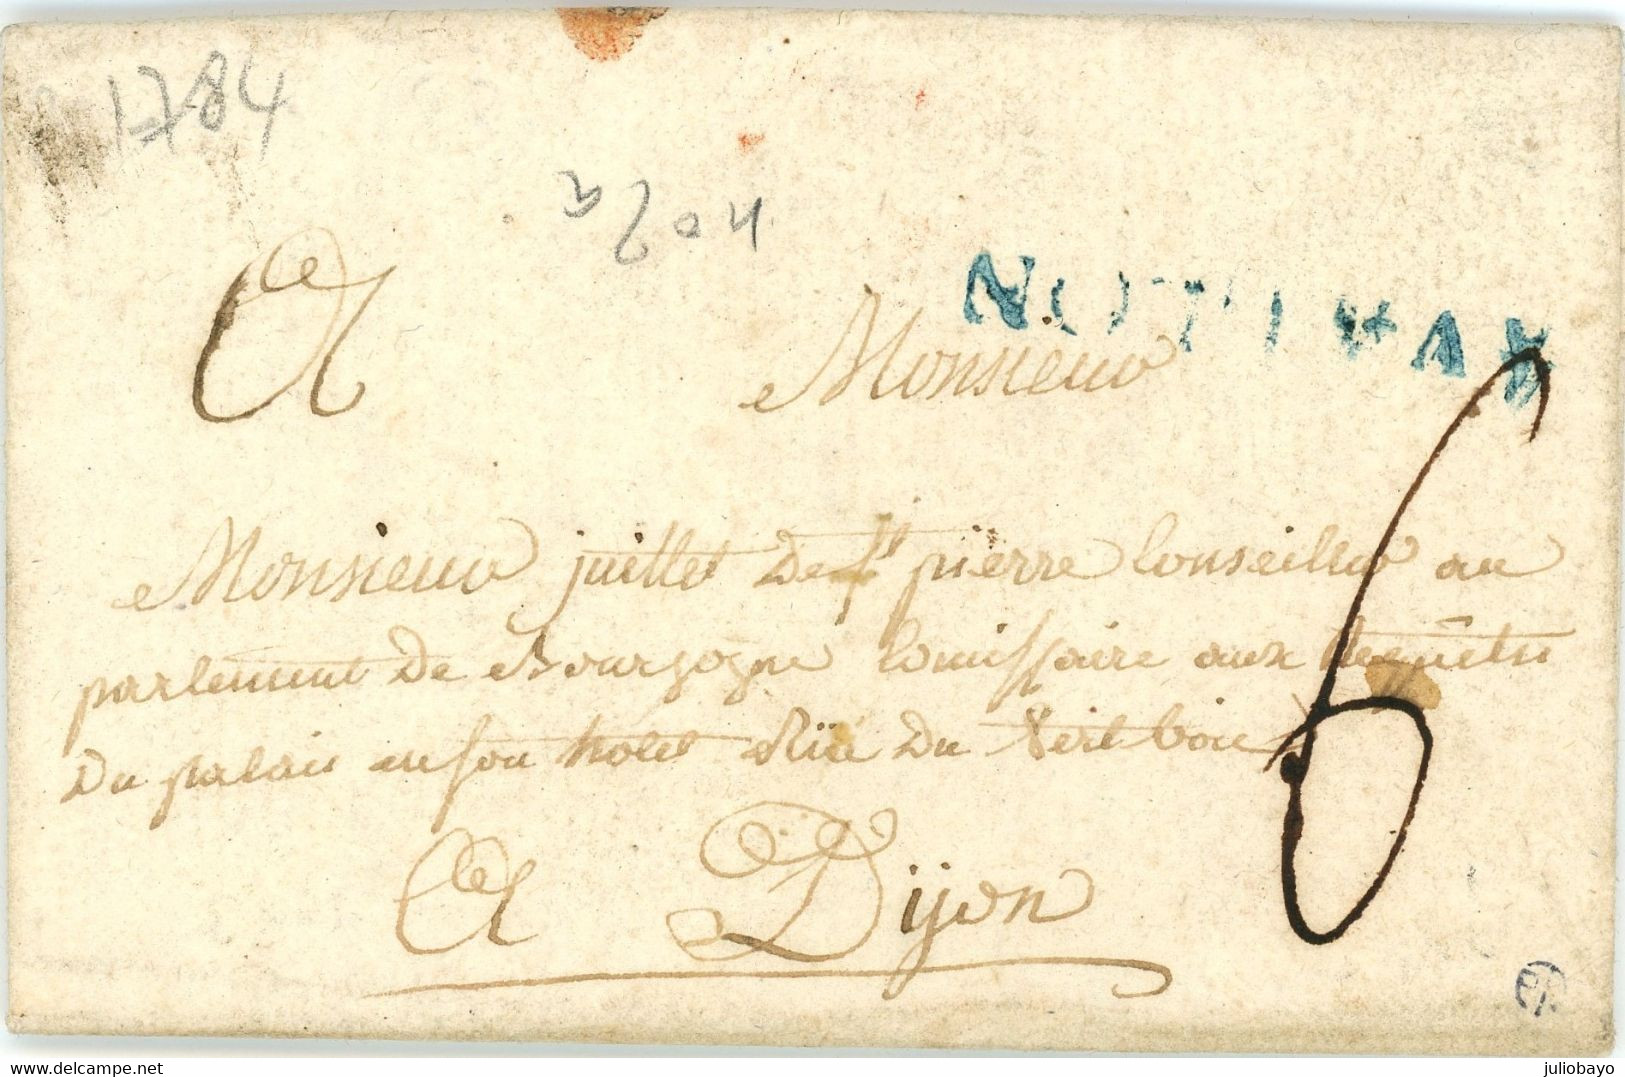 1784
204
A Monsieur
Monsieur juillet De St pierre Conseiller au
parlement De Bourgogne Comissaire aux Requêtes
Du palais en son hotel Rüe Du Vert bois
6
A Dijon
delcampe.net
juliobayo